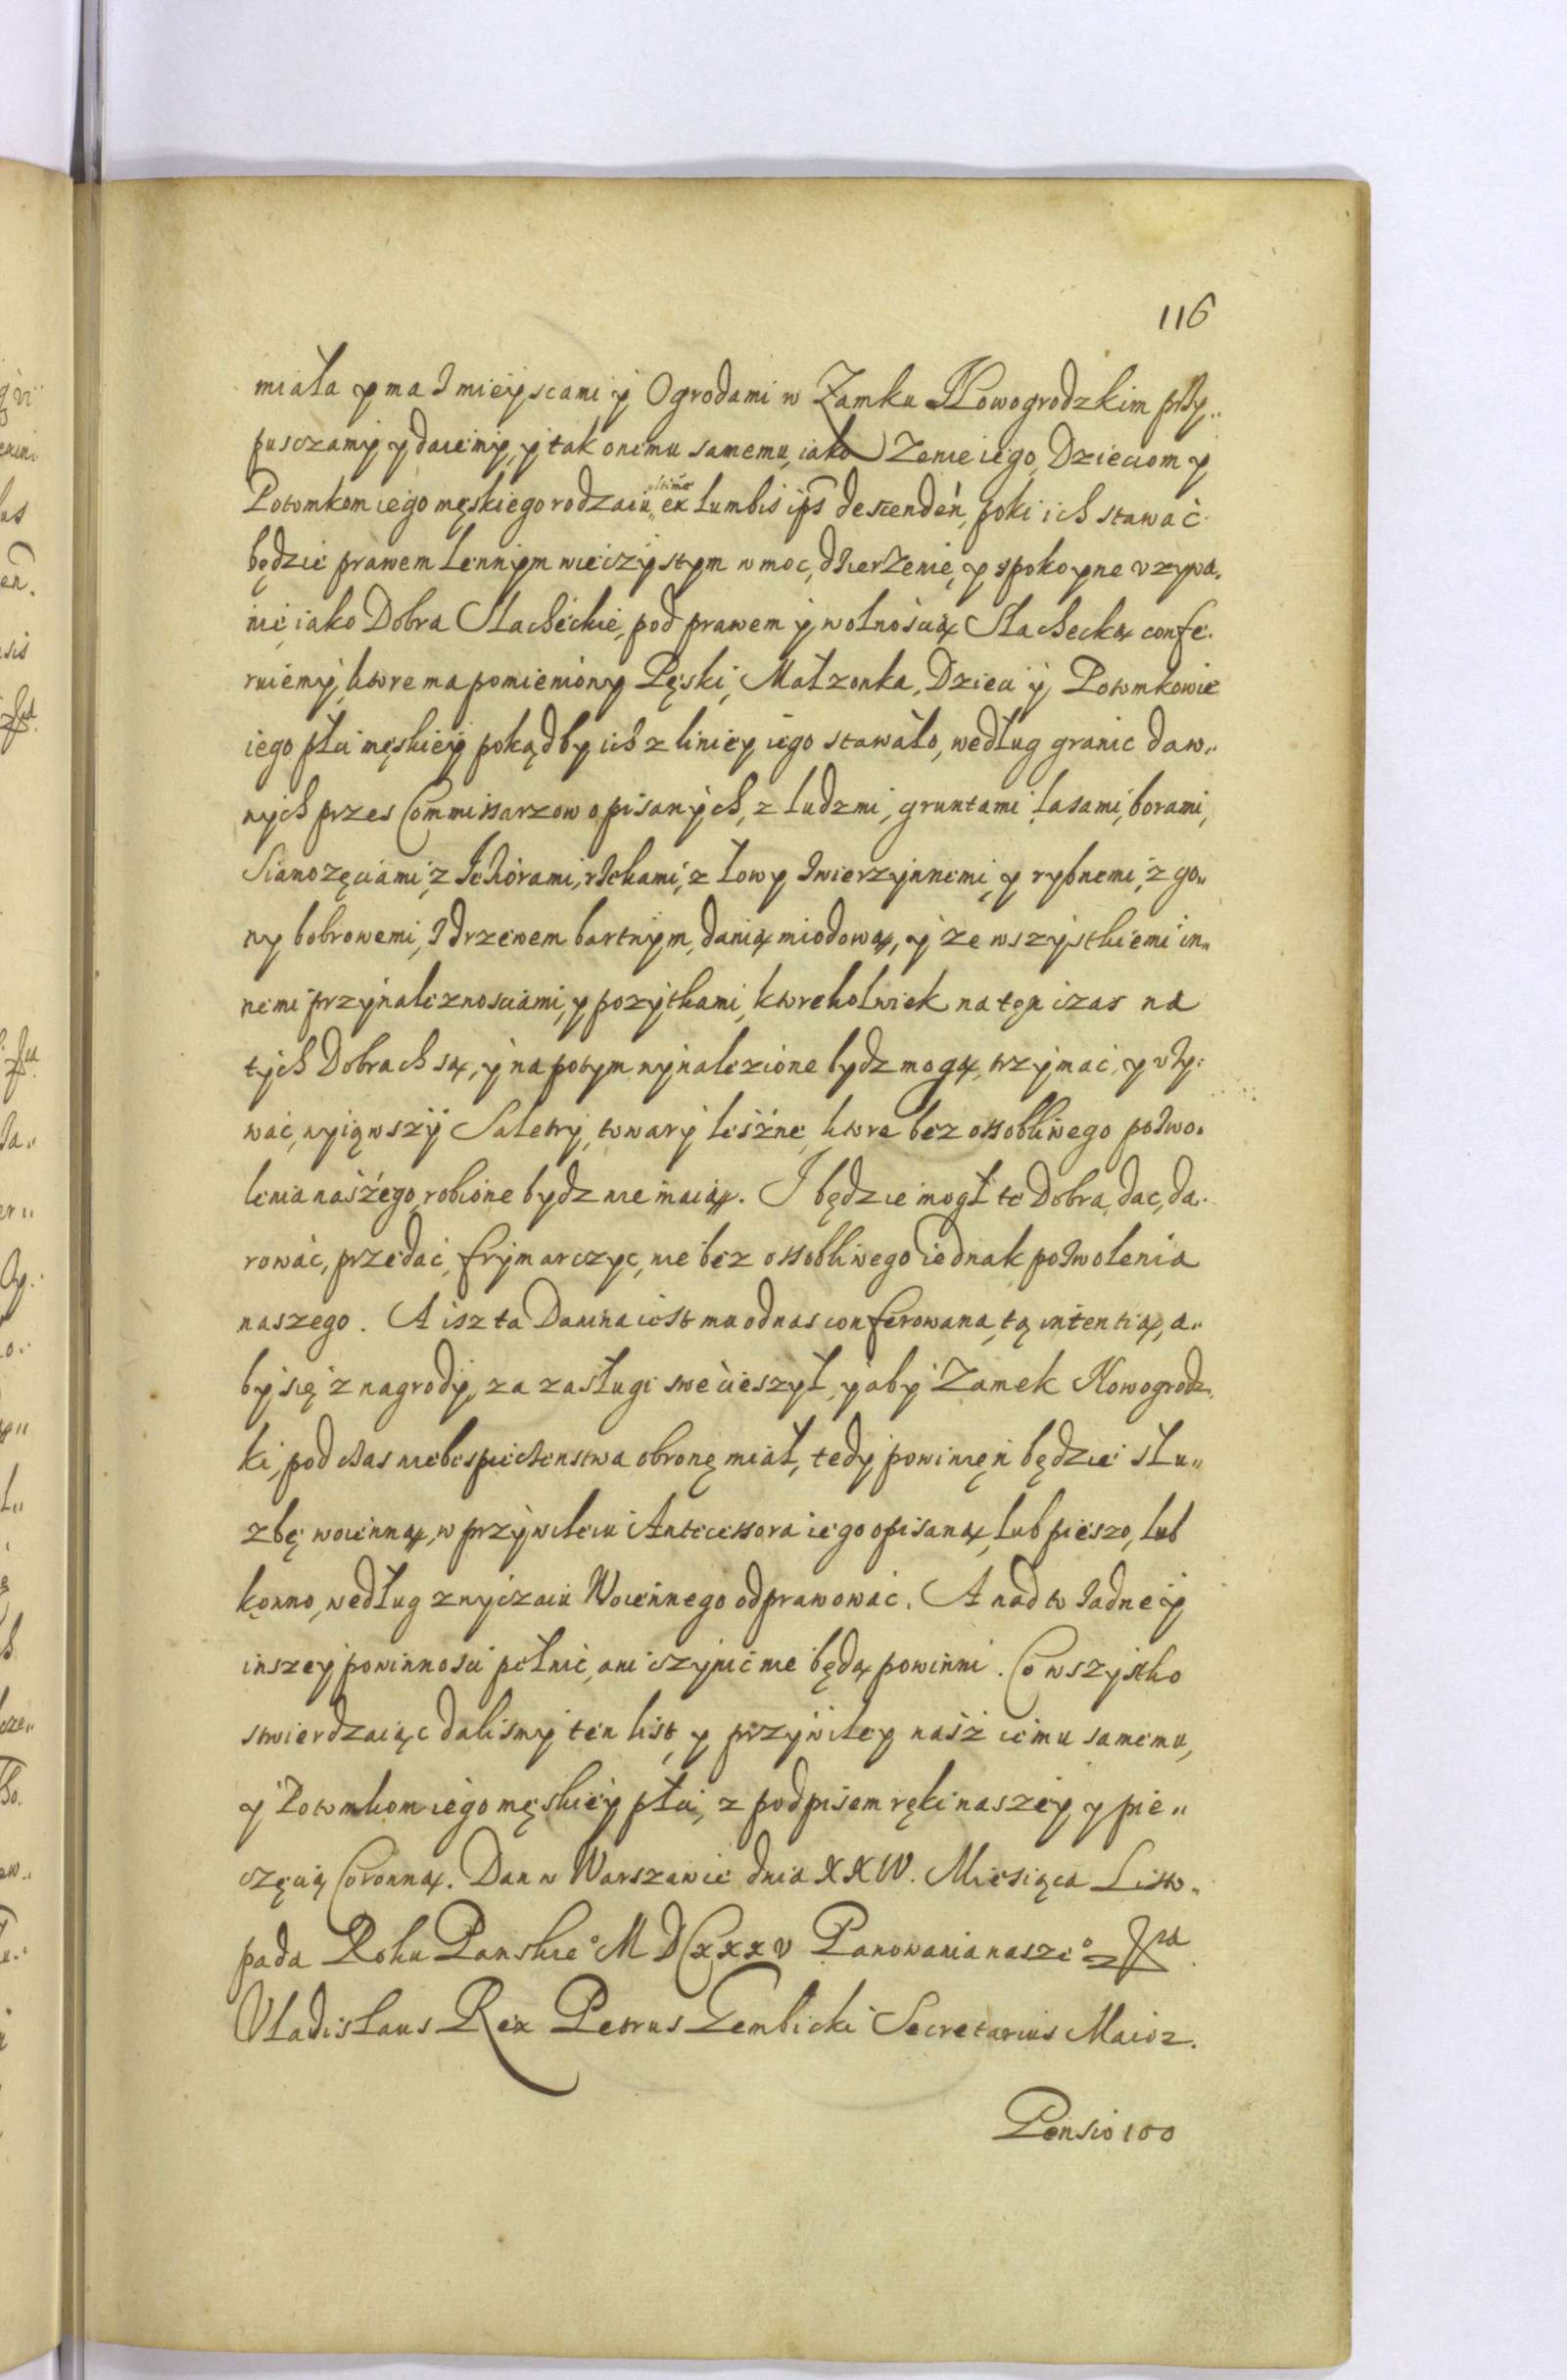 116
miała y ma z mieyscami y Ogrodami w Zamku Nowogrodzkim przy„
pusczamy y daiemy, y tak onemu samemu, iako Zenie iego, Dzieciom y
Potomkom iego męskiego rodzaiu, ex lumbis ips descenden, poki ich stawać
będzie prawem lennym wieczystym w moc, dzierzenie, y spokoyne vzywa„
nie iako Dobra Slacheckie, pod prawem y wolnoscią Slachecką confe„
ruiemy, ktore ma pomieniony Pęski, Małzonka, Dzieci y Potomkowie
iego płci męskiey pokądby ich z liniey iego stawało, według granic daw„
nych przes Commissarzow opisanych, z ludzmi, gruntami, lasami, borami,
Sianozęciami, z Jeziorami, rzekami, z łowy zwierzynnemi, y rybnemi, z go„
ny bobrowemi, z drzewem bartnym, danią miodową, y ze wszystkiemi in„
nemi przynaleznosciami, y pozytkami, ktorekolwiek na ten czas na
tych Dobrach są, y napotym wynalezione bydz mogą, trzymac, y vzy„
wać, wyiąwszy Saletry, towary leśne, ktore bez ossobliwego pozwo„
lenia naszego robione bydz nie maią. I będzie mogł te Dobra, dac, da„
rować, przedać, frymarczyc, nie bez ossobliwego iednak pozwolenia
naszego. A isz ta Danina iest mu od nas conferowana, tą intentią, a„
by się z nagrody, za zasługi swe cieszył, y aby Zamek Nowogrodz„
ki, pod czas niebespieczenstwa obronę miał, tedy powinien będzie słu„
zbę woienną, w przywileiu Antecessora iego opisaną, lub pieszo, lub
konno, według zwyczaiu Woiennego odprawować. A nad to zadney
inszey powinnosci pełnić, ani czynić nie będą powinni. Co wszystko
stwierdzaiąc dalismy ten list, y przywiley nasz iemu samemu,
y Potomkom iego męskiey płci, z podpisem ręki naszey, y pie„
częcią Coronną. Dan w Warszawie dnia XXIV. Miesiąca Listo„
pada Roku Panskie° MDCxxxv Panowania nasze°
Vladislaus Rex Petrus Gembicki Secretarius Maior.
Pensio 100